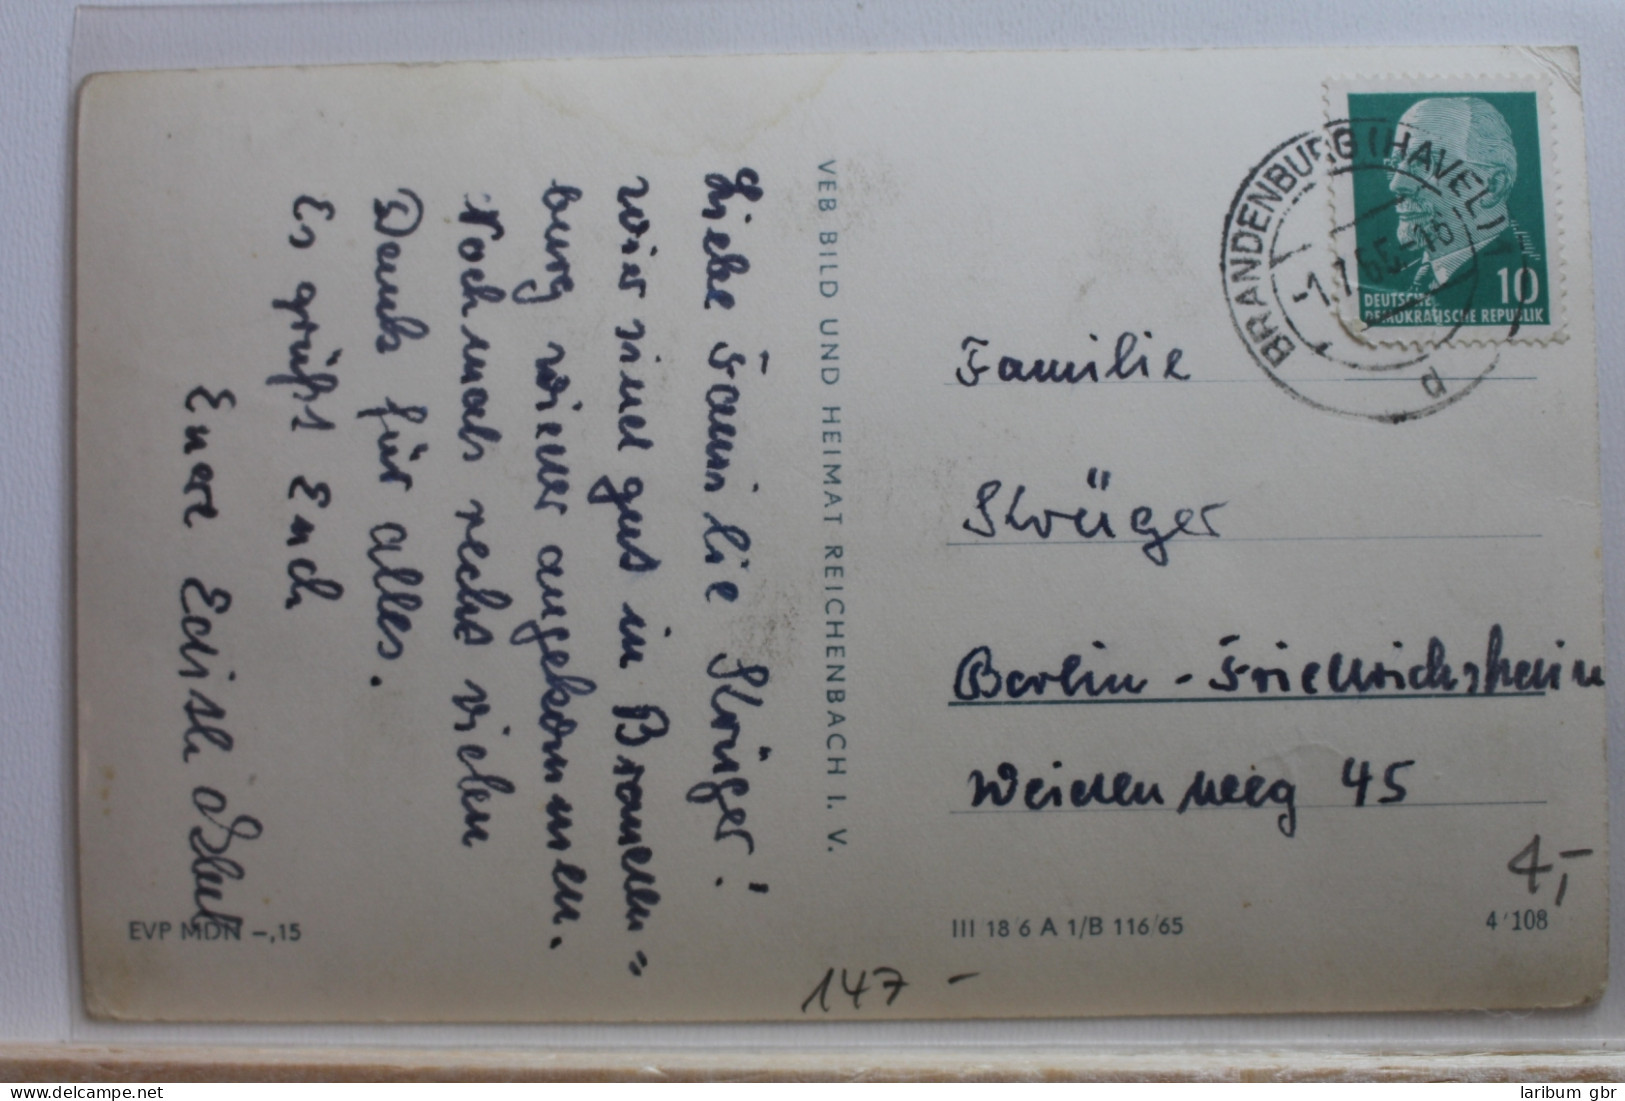 Liebe Familie Krüger!
wir sind gut in Branden=
burg wieder angekommen.
Nochmals recht vielen
Dank für alles.
Es grüßt Euch
Eure Edith
EVP MDN –,15
VEB BILD UND HEIMAT REICHENBACH I. V.
BRANDENBURG (HAVEL) 1
-1.7.65-16
d
10
DEUTSCHE
DEMOKRATISCHE REPUBLIK
Familie
Krüger
Berlin - Friedrichshain
Weidenweg 45
4,-
III 18 6 A 1/B 116/65
4 108
147 -
delcampe.net
laribum gbr